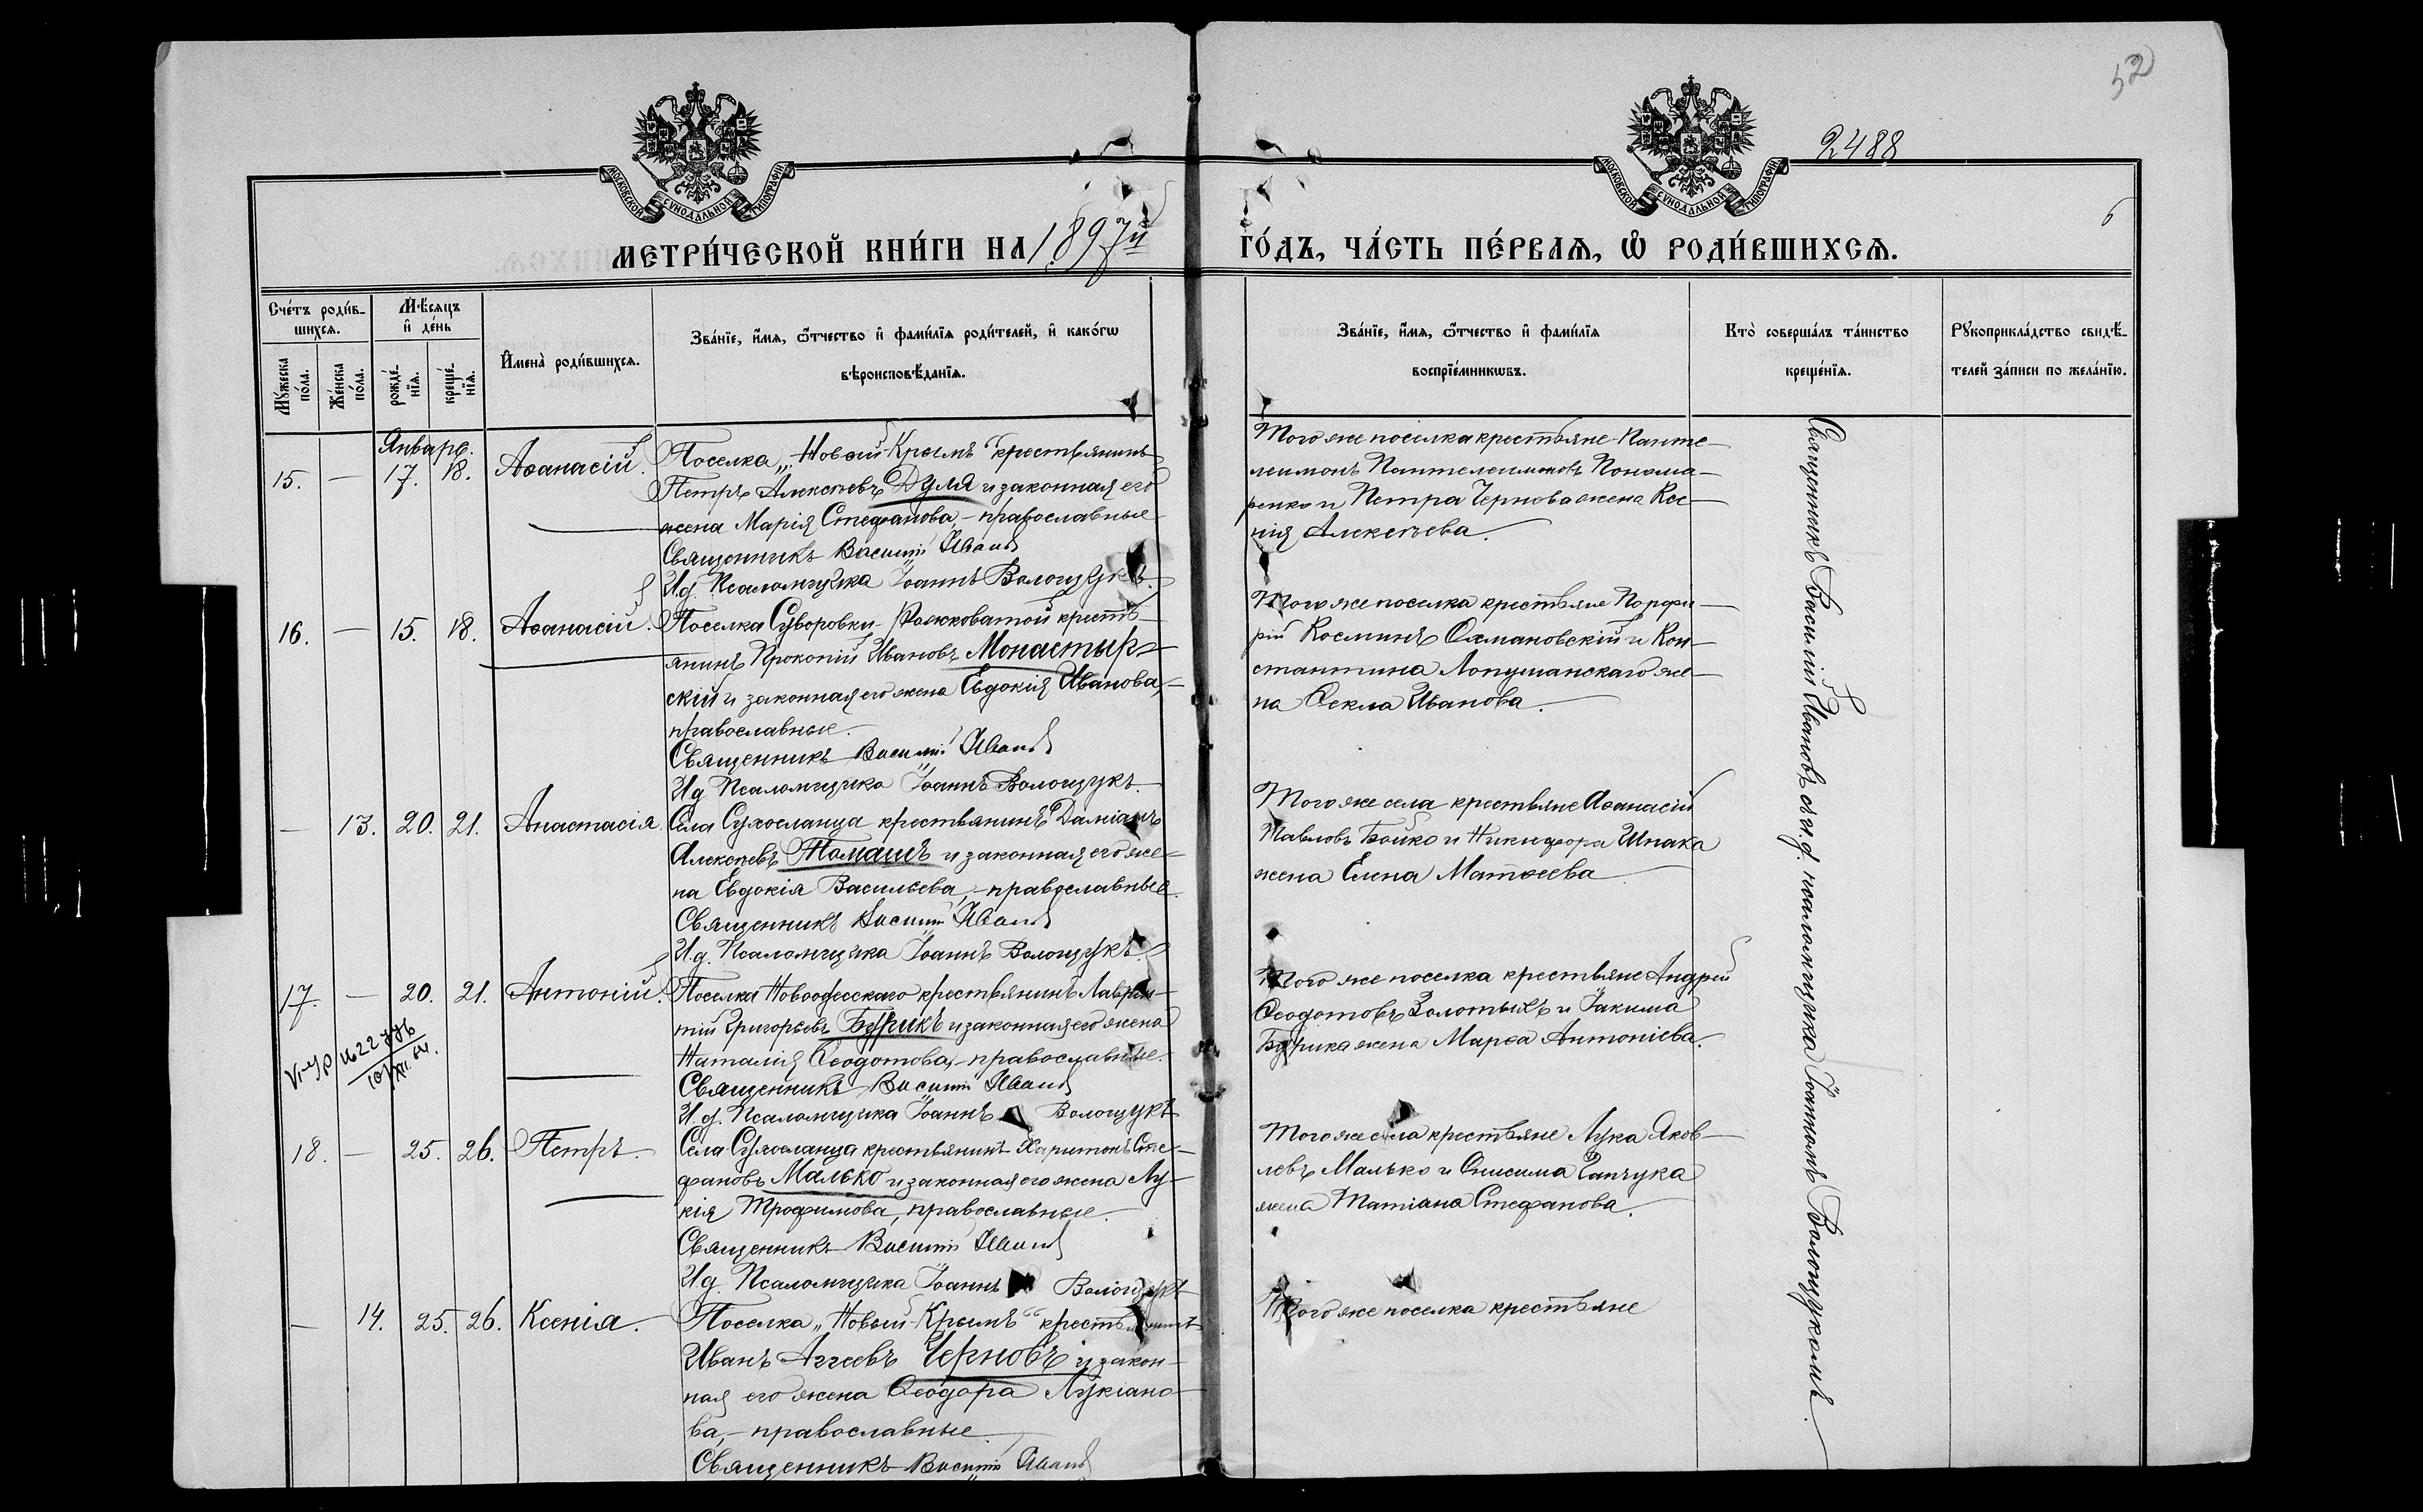 52
2488
6
МОСКОВСКОЙ СѴНОДАЛЬНОЙ ТИПОГРАФІИ
МОСКОВСКОЙ СѴНОДАЛЬНОЙ ТИПОГРАФІИ
МЕТРИ́ЧЕСКОЙ КНИ́ГИ НА 1897й ГО́ДЪ, ЧА́СТЬ ПЕ́РВАѦ, Ѡ҆ РОДИ́ВШИХСѦ.
Сче́тъ роди́в-
шихсѧ.
Мꙋ́жеска по́ла.
Же́нска по́ла.
Мѣ́сѧцъ и҆ де́нь
рожде́-нїѧ.
креще́-нїѧ.
И҆мена̀ роди́вшихсѧ.
Зва́нїе, и҆́мѧ, ѻ҆́тчество и҆ фами́лїѧ роди́телей, и҆ како́гѡ
вѣроисповѣ́данїѧ.
Зва́нїе, и҆́мѧ, ѻ҆́тчество и҆ фами́лїѧ
воспрїе́мникѡвъ.
Кто̀ соверша́лъ та́инство
креще́нїѧ.
Рꙋкоприкла́дство свидѣ́-
телей за́писи по жела́нїю.
Январь.
15. — 17. 18. Аѳанасій.
Поселка „Новый Крымъ“ крестьянинъ
Петръ Алексѣевъ Дуля и законная его
жена Марія Стефанова, – православные
Священникъ Василій Ивановъ
И.д. Псаломщика Іоаннъ Волощукъ.
Того же поселка крестьяне Панте-
леимонъ Пантелеимоновъ Понома-
ренко и Петра Чернова жена Ксе-
нія Алексѣева.
16. — 15. 18. Аѳанасій.
Поселка Суворовки кресть-
янинъ Прокопій Ивановъ Монастыр-
скій и законная его жена Евдокія Иванова,
православные.
Священникъ Василій Ивановъ
И.д. Псаломщика Іоаннъ Волощукъ.
Того же поселка крестьяне Порфи-
рій Косминъ и Кон-
стантина Лопушанскаго же-
на Ѳекла Иванова.
— 13. 20. 21. Анастасія.
Села Сухоеланца крестьянинъ Даміанъ
Алексѣевъ Томашъ и законная его же-
на Евдокія Васильева, – православные.
Священникъ Василій Ивановъ
И.д. Псаломщика Іоаннъ Волощукъ.
Того же села крестьяне Аѳанасій
Павловъ Бойко и Никифора Шпака
жена Елена Матѳеева
17. — 20. 21. Антоній.
Поселка Новоодесскаго крестьянинъ Лаврен-
тій Григорьевъ Бурикъ и законная его жена
Наталія Ѳеодотова, – православные.
Священникъ Василій Ивановъ
И.д. Псаломщика Іоаннъ Волощукъ
Того же поселка крестьяне Андрей
Ѳеодотовъ Золотыхъ и Іакима
Бурика жена Марѳа Антоніева.
18. — 25. 26. Петръ.
Села Сухоеланца крестьянинъ Харитонъ Сте-
фановъ Малько и законная его жена Лу-
кія Трофимова, православные.
Священникъ Василій Ивановъ
И.д. Псаломщика Іоаннъ Волощукъ
Того же села крестьяне Лука Яков-
левъ Малько и Онисима Ганчука
жена Татіана Стефанова.
— 14. 25. 26. Ксенія.
Поселка „Новый Крымъ“ крестьянинъ
Иванъ Аггеевъ Черновъ и закон-
ная его жена Ѳеодора Лукіано-
ва, – православные
Священникъ Василій Ивановъ
Того же поселка крестьяне
Священникъ Василій Ивановъ съ и.д. псаломщика Іоанномъ Волощукомъ.